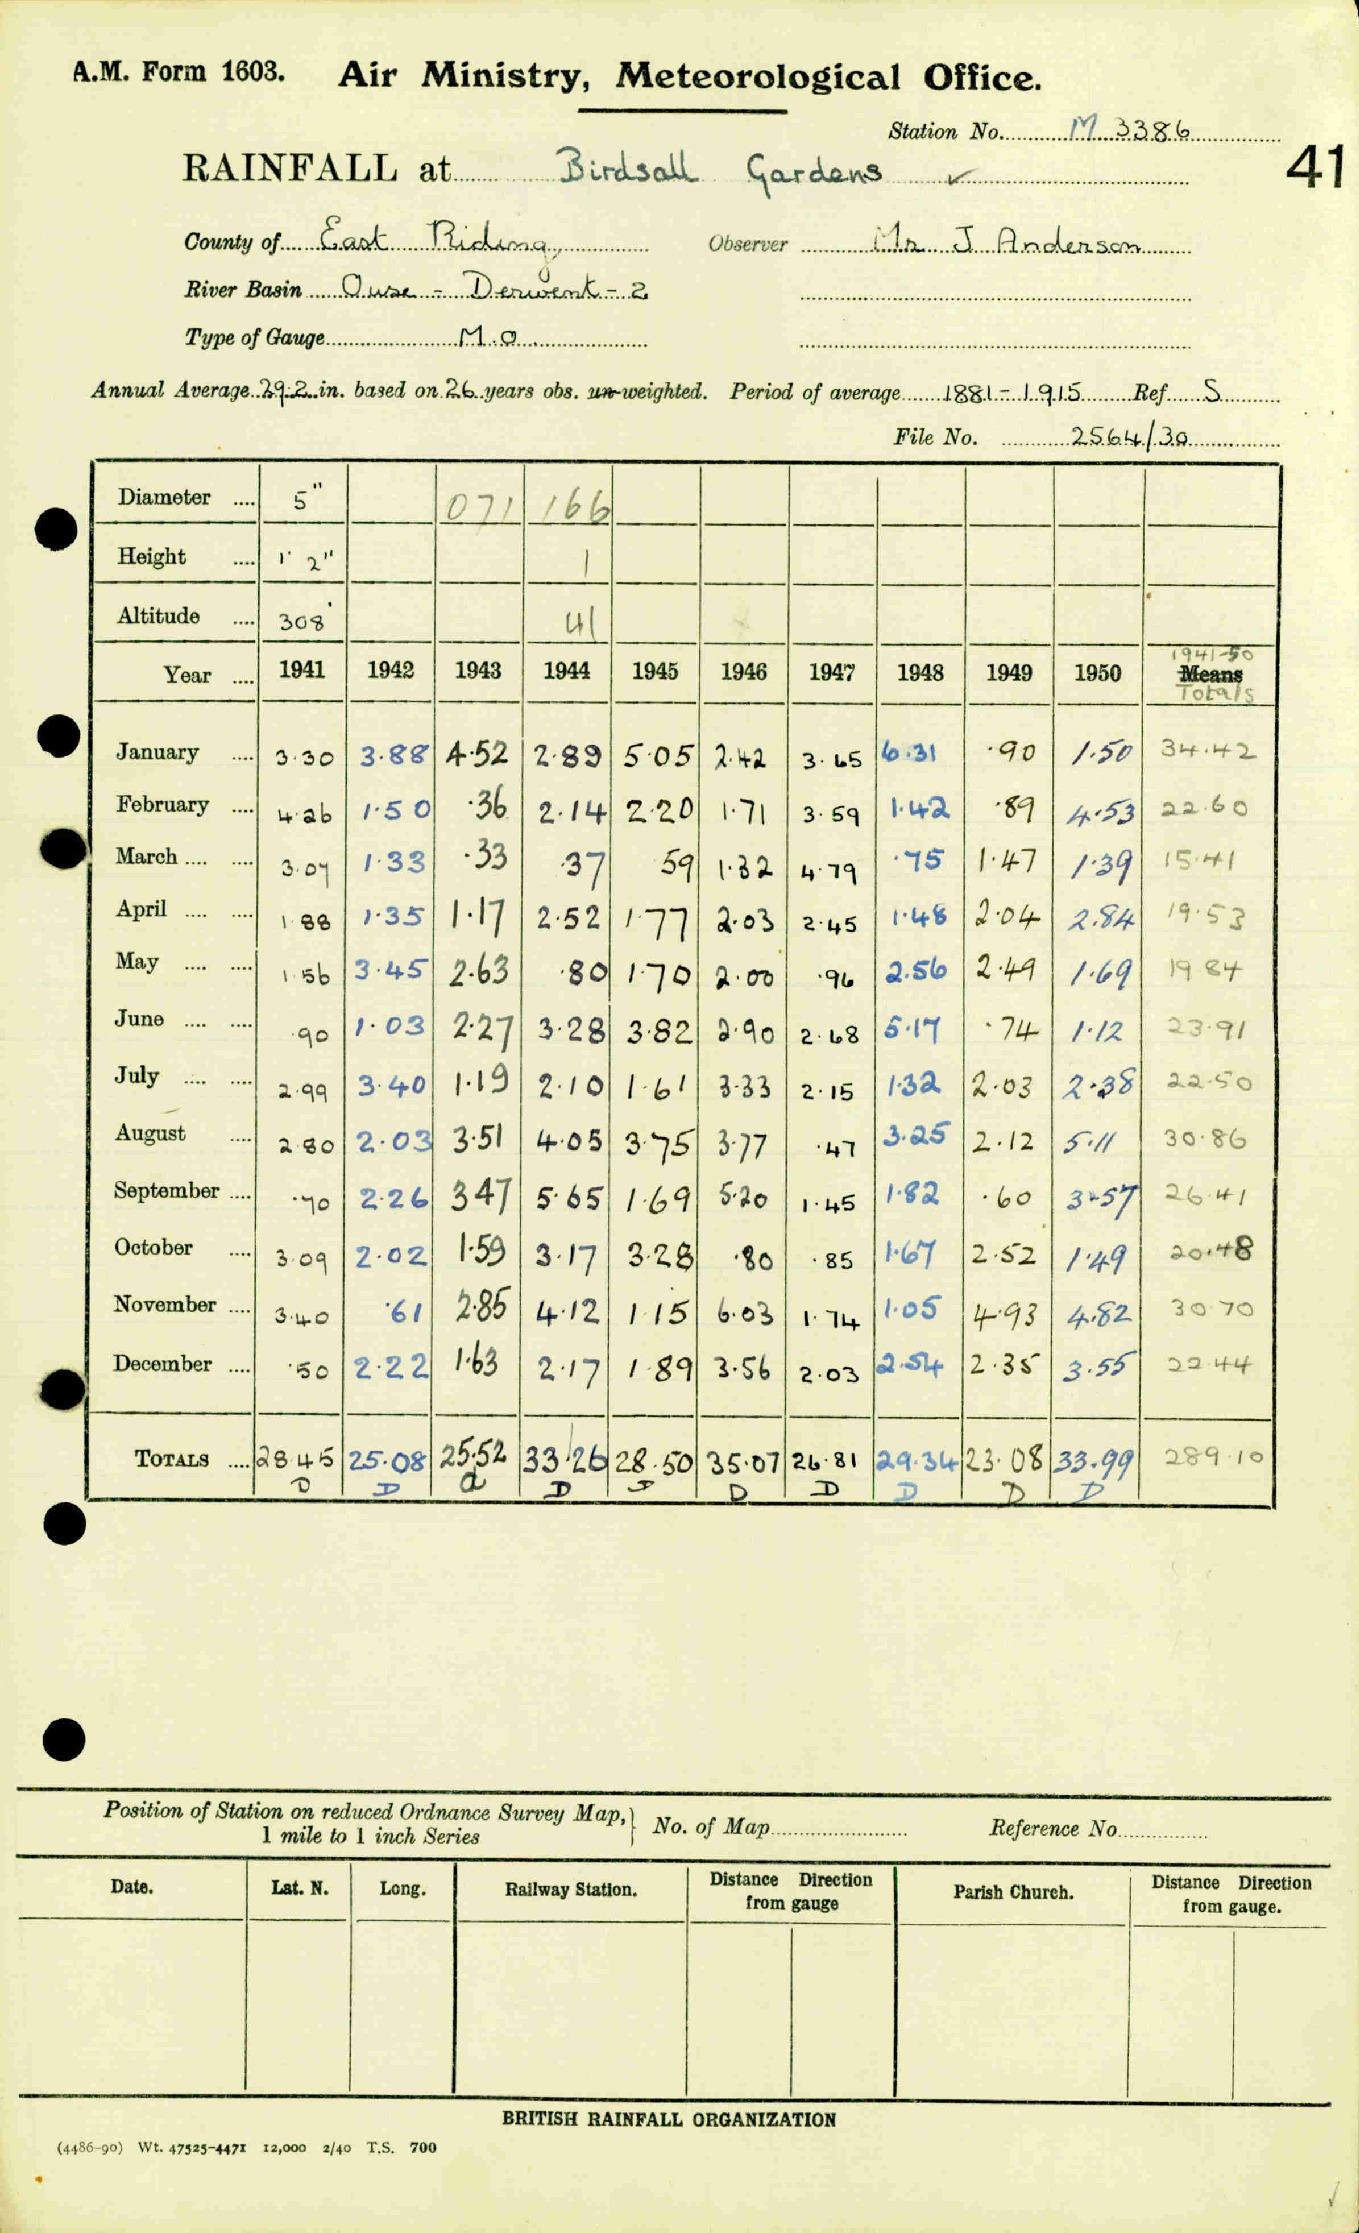 A.M. Form 1603. Air Ministry, Meteorological Office.
Station No. M 3386
41
RAINFALL at Birdsall Gardens ✓
County of East Riding, Observer Mr J Anderson
River Basin Ouse - Derwent - 2
Type of Gauge M.O.
Annual Average 29.2 in. based on 26 years obs. un-weighted. Period of average 1881-1915 Ref S
File No. 2564/30
Diameter .... 5" 071 166
Height .... 1' 2" 1
Altitude .... 308' 41
1941-50
Year .... 1941 1942 1943 1944 1945 1946 1947 1948 1949 1950 Means
Totals
January .... 3.30 3.88 4.52 2.89 5.05 2.42 3.65 6.31 .90 1.50 34.42
February .... 4.26 1.50 .36 2.14 2.20 1.71 3.59 1.42 .89 4.53 22.60
March .... .... 3.07 1.33 .33 .37 59 1.32 4.79 .75 1.47 1.39 15.41
April .... .... 1.88 1.35 1.17 2.52 1.77 2.03 2.45 1.48 2.04 2.84 19.53
May .... .... 1.56 3.45 2.63 .80 1.70 2.00 .96 2.56 2.49 1.69 19 84
June .... .... .90 1.03 2.27 3.28 3.82 2.90 2.68 5.17 .74 1.12 23.91
July .... .... 2.99 3.40 1.19 2.10 1.61 3.33 2.15 1.32 2.03 2.38 22.50
August .... 2.80 2.03 3.51 4.05 3.75 3.77 .47 3.25 2.12 5.11 30.86
September .... .70 2.26 3 47 5.65 1.69 5.20 1.45 1.82 .60 3.57 26.41
October .... 3.09 2.02 1.59 3.17 3.28 .80 .85 1.67 2.52 1.49 20.48
November .... 3.40 .61 2.85 4.12 1.15 6.03 1.74 1.05 4.93 4.82 30.70
December .... .50 2.22 1.63 2.17 1.89 3.56 2.03 2.54 2.35 3.55 22.44
TOTALS .... 28.45 25.08 25.52 33.26 28.50 35.07 26.81 29.34 23.08 33.99 289.10
D D a D D D D D D
Position of Station on reduced Ordnance Survey Map,
1 mile to 1 inch Series } No. of Map Reference No.
Date. Lat. N. Long. Railway Station. Distance Direction from gauge Parish Church. Distance Direction from gauge.
BRITISH RAINFALL ORGANIZATION
(4486-90) Wt. 47525-4471 12,000 2/40 T.S. 700